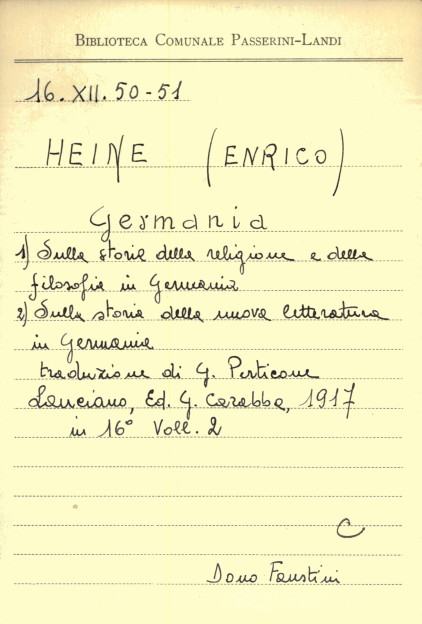 BIBLIOTECA COMUNALE PASSERINI-LANDI
16. XII. 50-51
HEINE (ENRICO)
Germania
1) Sulla storia della religione e della
filosofia in Germania
2) Sulla storia della nuova letteratura
in Germania
traduzione di G. Perticone
Lanciano, Ed. G. Carabba, 1917
in 16° Voll. 2
C
Dono Faustini